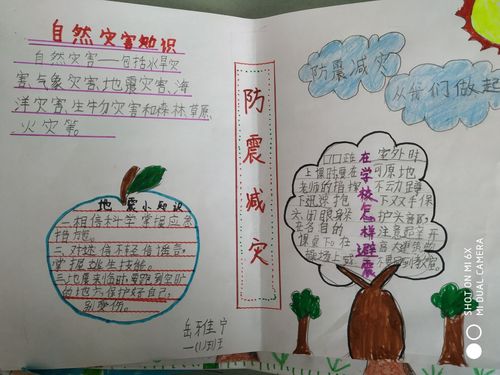 自然灾害知识
自然灾害——包括水旱灾
害、气象灾害、地震灾害、海
洋灾害、生物灾害和森林草原
火灾等。
地震小知识
一.相信科学掌握应急
技能。
二.对迷信不轻信谣言,
掌握逃生技能。
三.地震来临时要跑到空旷
的地方,保护好自己,
别受伤。
岳雅宁
一(1)班
防震减灾
防震减灾
从我们做起
在学校怎样避震
上课时要在
老师的指挥
下迅速抱
头闭眼躲
在各自的
课桌下。在
操场上或
室外时
可原地
不动蹲
下双手保
护头部
注意避开
高大建筑物
SHOT ON MI 6X
MI DUAL CAMERA